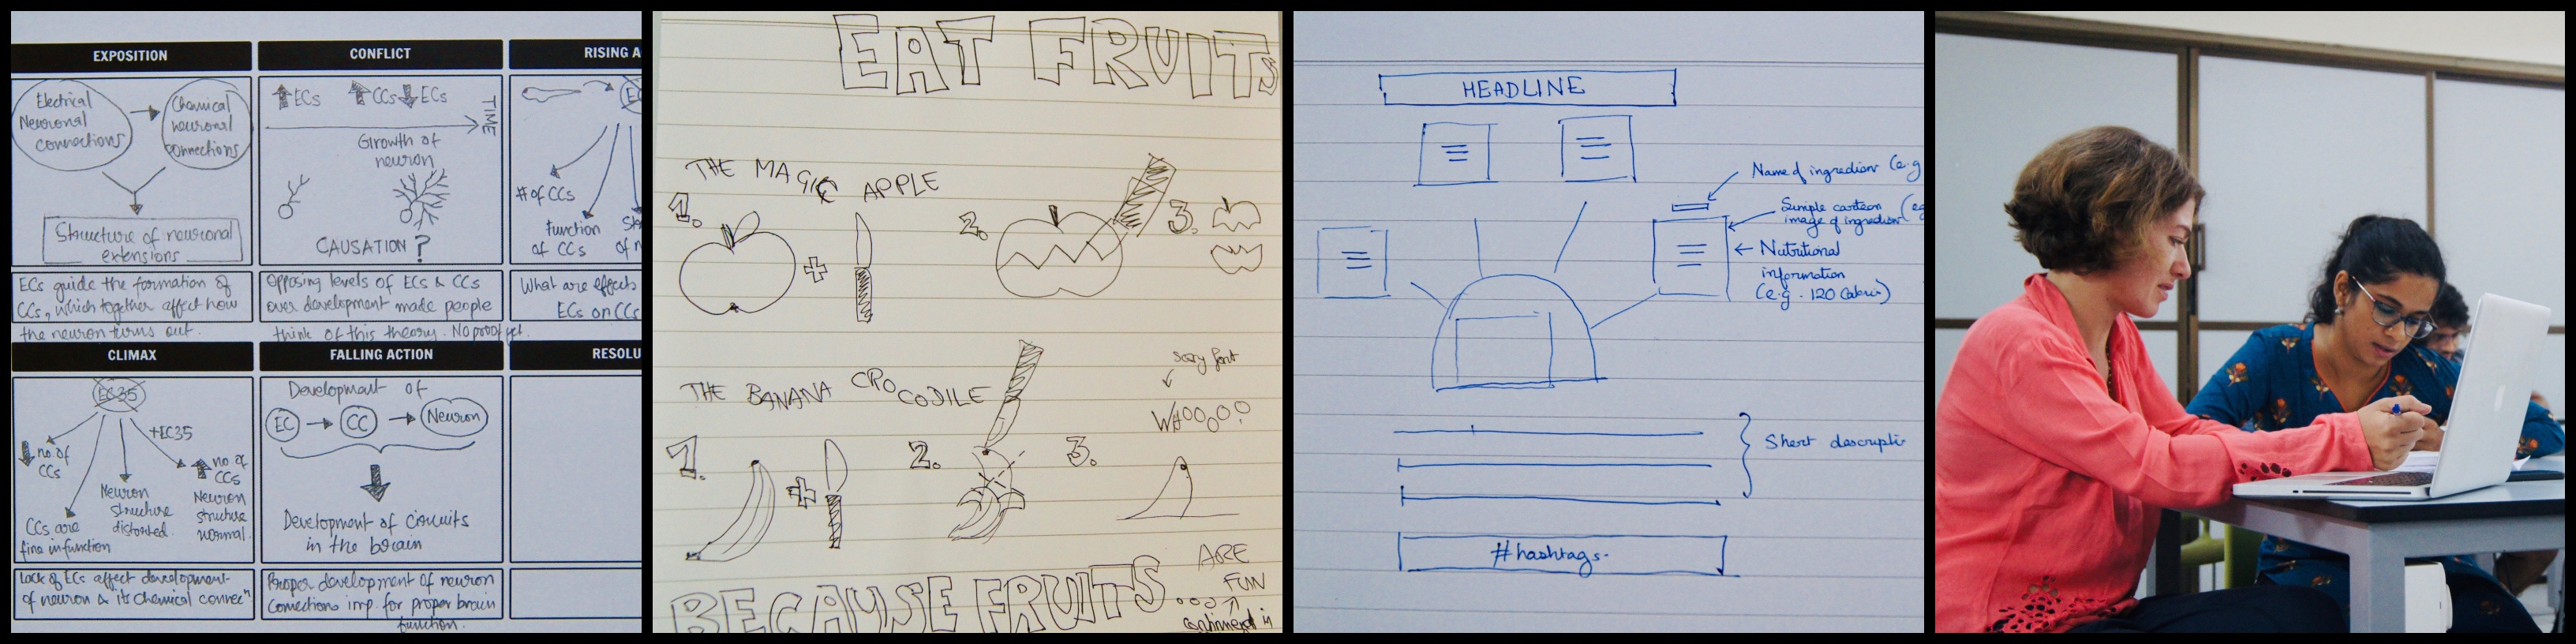 EXPOSITION
Electrical
Neuronal
connections
Chemical
neuronal
connections
Structure of neuronal
extensions
ECs guide the formation of
CCs, which together affect how
the neuron turns out.
CONFLICT
ECs
CCs ECs
TIME
Growth of
neuron
CAUSATION?
Opposing levels of ECs & CCs
over development made people
think of this theory. No proof yet.
RISING A
EC
# of CCs
function
of CCs
St
of n
What are effects
ECs on CCs
CLIMAX
EC35
no. of
CCs
CCs are
fine in function
Neuron
structure
distorted.
+EC35
no. of
CCs
Neuron
structure
normal.
Lack of ECs affect development
of neuron & its chemical connecn
FALLING ACTION
Development of
EC
CC
Neuron
Development of circuits
in the brain
Proper development of neuron
connections imp. for proper brain
function.
RESOLU
EAT FRUITS
THE MAGIC APPLE
1.
+
2.
3.
THE BANANA CROCODILE
scary font
WHOOOOO
1.
+
2.
3.
BECAUSE FRUITS...
ARE
FUN
HEADLINE
Name of ingredien (e.g
Simple cartoon
image of ingredient (eg
Nutritional
information
(e.g. 120 Calorie)
Short descripti
#hashtags.